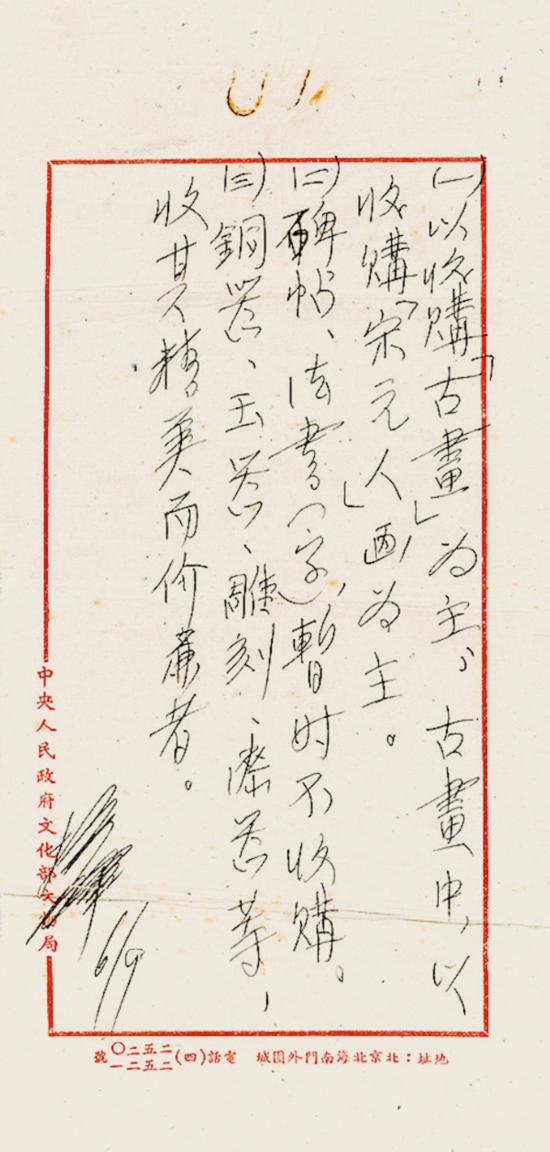 (一)以收購「古畫」为主，古畫中，以
收購「宋元人」画为主。
(二)碑帖、法書(字)，暫时不收購。
(三)銅器、玉器、雕刻、漆器等，
收其精美而价廉者。
6/9
中央人民政府文化部文物局
地址：北京北海南門外團城　電話(四)二五二〇
二五二一號